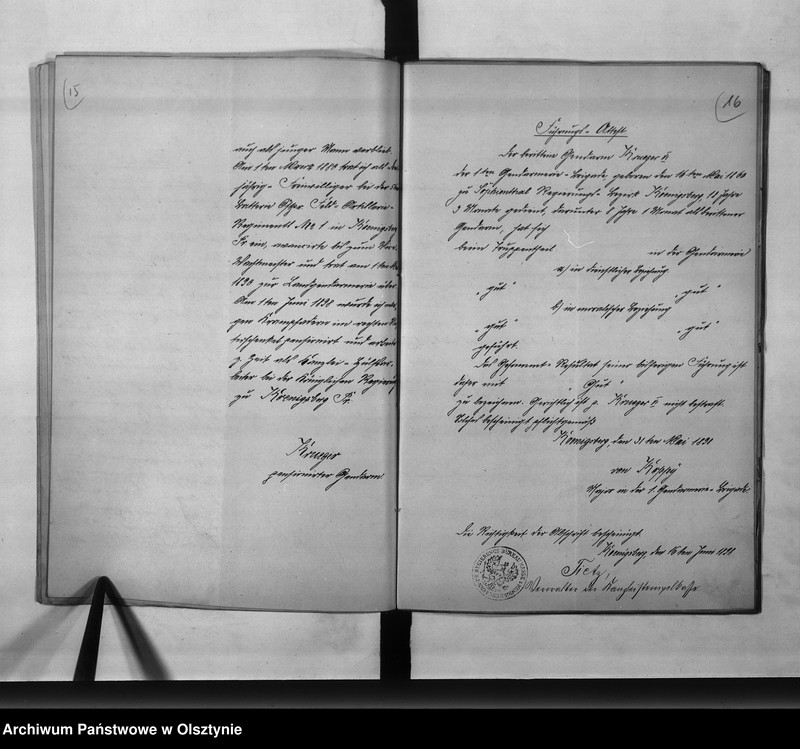 15
auch als junger Mann verblieb.
Am 1ten März 1879 trat ich als drei
jährig-Freiwilliger bei der
Batterie Ostpr. Feld-Artillerie-
Regiments No 1 in Koenigsberg
Pr. ein, avancirte bis zum Vice-
Wachtmeister und trat am 1ten
1890 zur Landgendarmerie über.
Am 1ten Juni 1891 wurde ich we-
gen Krampfadern im rechten
pensionirt und arbeite
z. Zeit als Kanzlei-Hülfsar-
beiter bei der Königlichen Regierung
zu Koenigsberg Pr.
Krueger
pensionirter Gendarm.
16
Führungs-Attest.
Der berittene Gendarm Krueger II
der 1ten Gendarmerie-Brigade, geboren den 16ten Mai 1860
zu Regierungs-Bezirk Königsberg 12 Jahre
3 Monate gedient, darunter 1 Jahr 1 Monat als berittener
Gendarm, hat sich
beim Truppentheil in der Gendarmerie
a) in dienstlicher Beziehung
"gut" "gut"
b) in moralischer Beziehung
"gut" "gut"
geführt.
Das Gesammt-Resultat seiner bisherigen Führung ist
daher mit "Gut"
zu bezeichnen. Gerichtlich ist p. Krueger II nicht bestraft.
Dieses bescheinigt pflichtgemäß
Königsberg, den 31ten Mai 1891
von Koppy
Major in der 1. Gendarmerie-Brigade.
Die Richtigkeit der Abschrift bescheinigt
Koenigsberg den 16ten Juni 1891
Tietz,
Verwalter der Kanzleistempelkasse
Archiwum Państwowe w Olsztynie